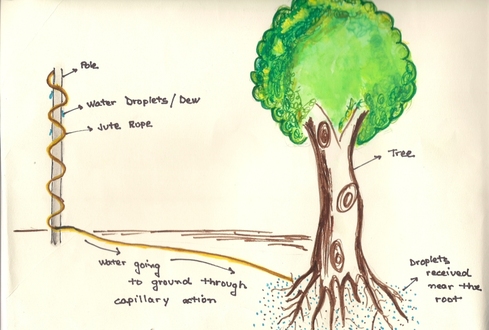 Pole
Water Droplets/Dew
Jute Rope
Tree
Water going
to ground through
capillary action
Droplets
received
near the
root